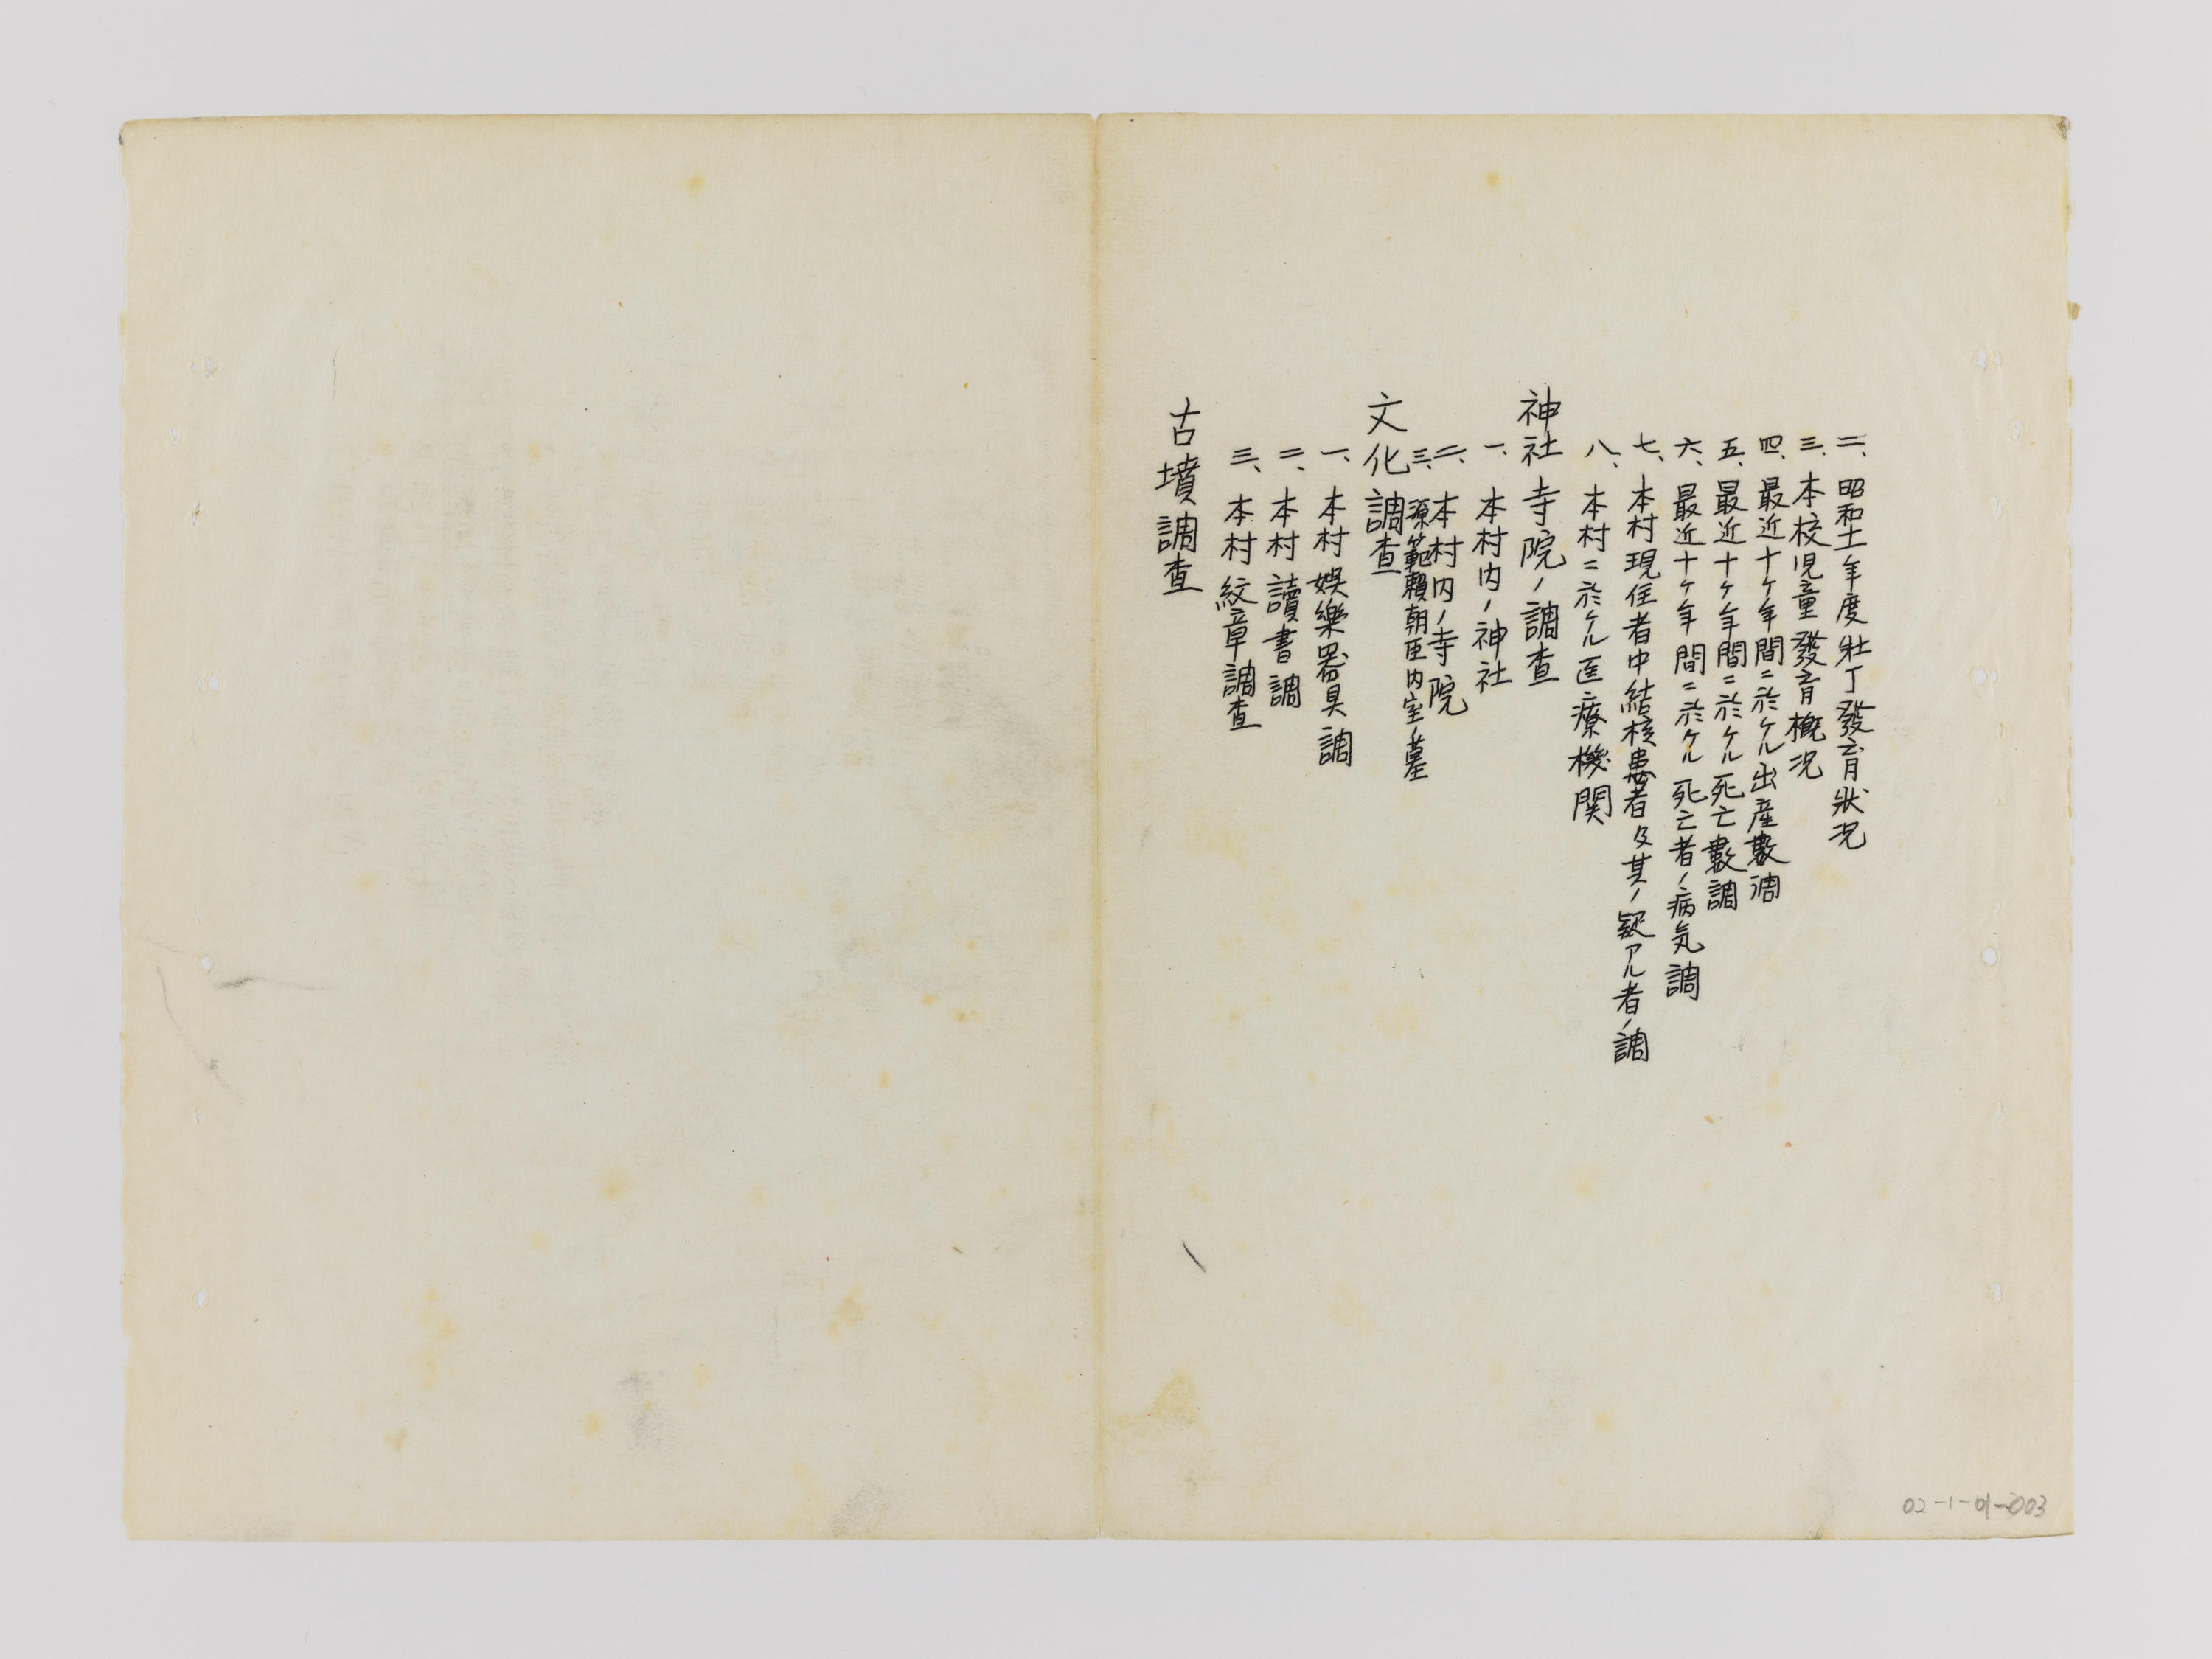 二、昭和十一年度壯丁發育狀況
三、本校児童發育概况
四、最近十ケ年間ニ於ケル出産數調
五、最近十ケ年間ニ於ケル死亡數調
六、最近十ケ年間ニ於ケル死亡者ノ病気調
七、本村現住者中結核患者及其ノ疑アル者ノ調
八、本村ニ於ケル医療機関
神社寺院ノ調査
一、本村内ノ神社
二、本村内ノ寺院
三、源範頼朝臣内室ノ墓
文化調査
一、本村娯樂器具調
二、本村讀書調
三、本村紋章調査
古墳調査
02-1-01-003